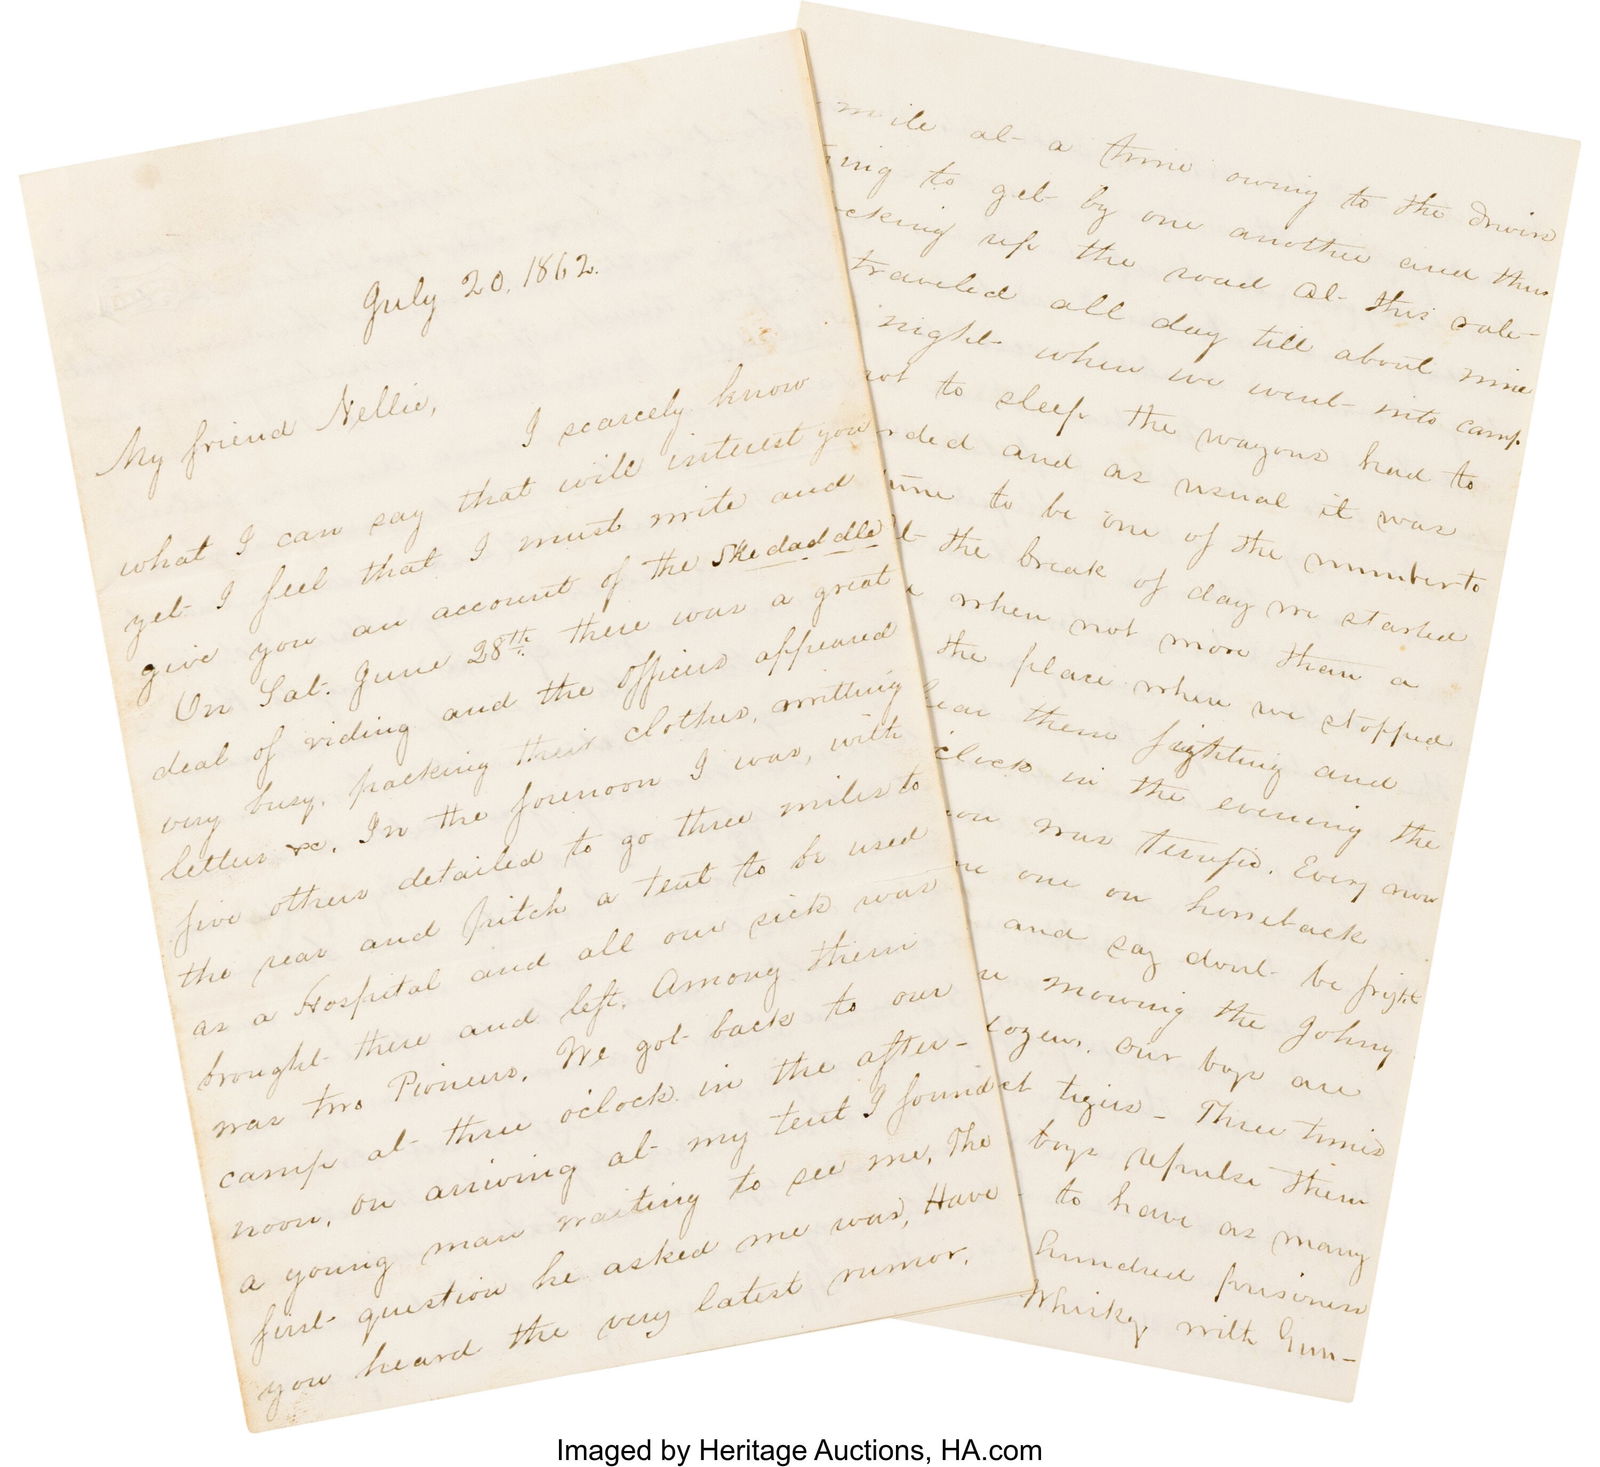 July 20, 1862.
My friend Nellie,
I scarcely know
what I can say that will interest you
yet I feel that I must write and
give you an account of the Skedaddle
On Sat. June 28th there was a great
deal of riding and the officers appeared
very busy, packing their clothes, writting
letters &c. In the forenoon I was, with
five others detailed to go three miles to
the rear and pitch a tent to be used
as a Hospital and all our sick was
brought there and left. Among them
was two Pioneers. We got back to our
camp at three oclock in the after-
noon, on arriving at my tent I found
a young man waiting to see me, The
first question he asked me was, Have
you heard the very latest rumor.
mile at a time owing to the drivers
ing to get by one another and thus
cking up the road At this rate
traveled all day till about nine
night when we went into camp
not to sleep the wagons had to
ded and as usual it was
une to be one of the number to
the break of day we started
when not more than a
the place when we stopped
hear them fighting and
clock in the evening the
was terrific. Every now
one on horseback
and say dont be fright
mowing the Johny
dozens, our boys are
tigers - Three times
boys repulse them
to have as many
hundred prisoners
Whisky, with Gun-
Imaged by Heritage Auctions, HA.com